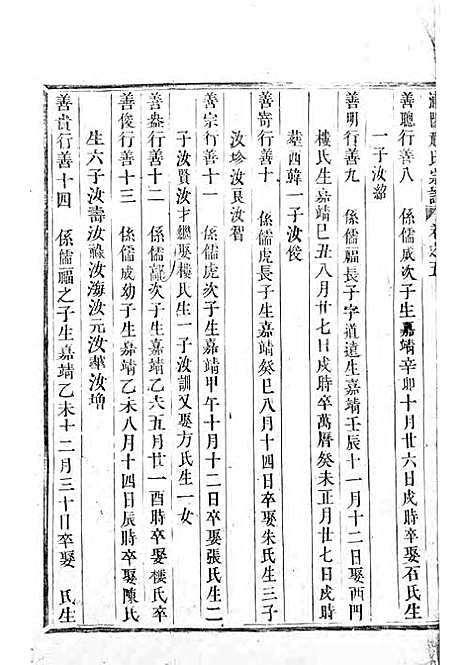 氏宗譜 卷之五
善聰行善八 係儒成次子生嘉靖辛卯十月廿六日戌時卒娶石氏生
一子汝紹
善明行善九 係儒福長子字道遠生嘉靖壬辰十一月十二日娶西門
樓氏生嘉靖巳丑八月廿七日戌時卒萬曆癸未正月廿七日戌時
塟西韓一子汝俊
善寄行善十 係儒虎長子生嘉靖癸巳八月十四日卒娶朱氏生三子
汝珍汝良汝智
善宗行善十一 係儒虎次子生嘉靖甲午十月十二日卒娶張氏生二
子汝賢汝才繼娶樓氏生一子汝訓又娶方氏生一女
善泰行善十二 係儒 次子生嘉靖乙未五月廿一酉時卒娶樓氏卒
善俊行善十三 係儒成幼子生嘉靖乙未八月十四日辰時卒娶陳氏
生六子汝壽汝祿汝海汝元汝華汝增
善貴行善十四 係儒福之子生嘉靖乙未十二月三十日卒娶 氏生